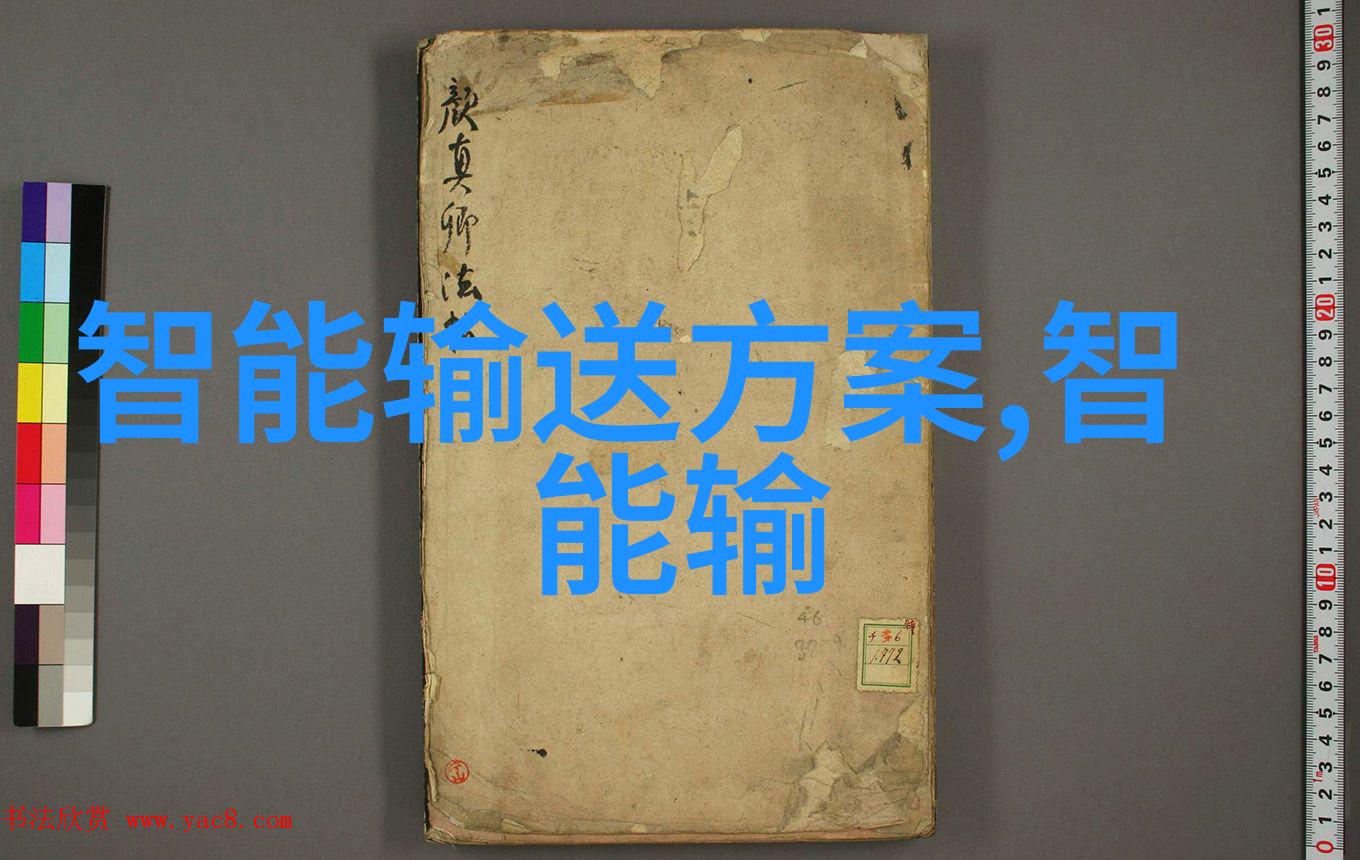 颜真卿法
智能输送方案,智
能输
上
46
特
1772
书法欣赏 www.yac8.com